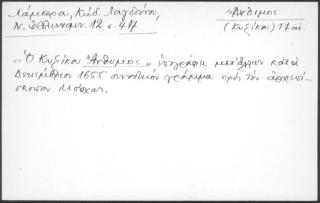 Λάμπρου, Κώδ. Λαγδούνου, Ἄνθιμος
Ν. Ἑλληνομν. 12 σ. 417 (Κυζίκου) 17 αἰ.
"Ὁ Κυζίκου Ἄνθιμος" ὑπογράφει μετ' ἄλλων κατὰ
Δεκέμβριον 1655 συνοδικὸν γράμμα πρὸς τὸν ἀρχιεπί-
σκοπον Μόσχας.